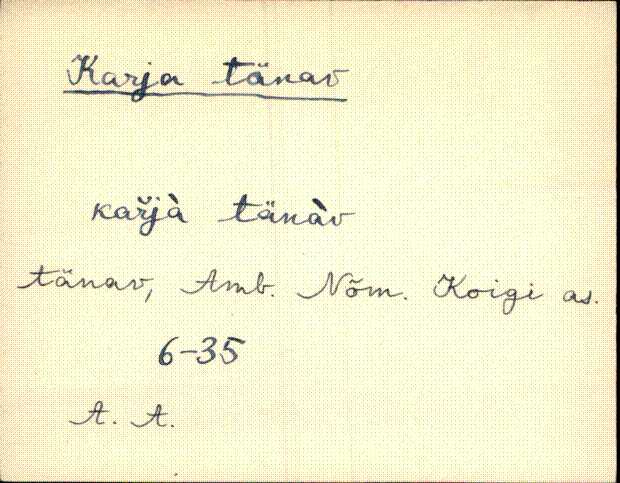 Karja tänav
kař̀jà tänàv
tänav, Amb. Nõm. Koigi as.
6-35
A. A.